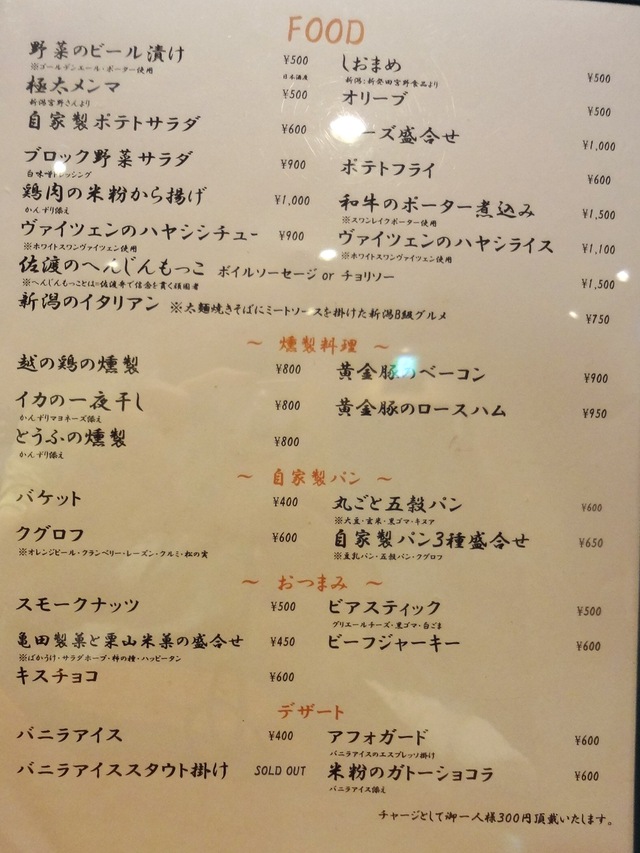 FOOD
野菜のビール漬け ¥500
※ゴールデンエール・ポーター使用
極太メンマ ¥500
新潟宮野さんより
自家製ポテトサラダ ¥600
ブロック野菜サラダ ¥900
白味噌ドレッシング
鶏肉の米粉から揚げ ¥1,000
かんずり添え
ヴァイツェンのハヤシシチュー ¥900
※ホワイトスワンヴァイツェン使用
しおまめ ¥500
新潟:新発田宮野食品より
オリーブ ¥500
ーズ盛合せ ¥1,000
ポテトフライ ¥600
和牛のポーター煮込み ¥1,500
※スワンレイクポーター使用
ヴァイツェンのハヤシライス ¥1,100
※ホワイトスワンヴァイツェン使用
佐渡のへんじんもっこ ボイルソーセージ or チョリソー ¥1,500
※へんじんもっことは=佐渡弁で信念を貫く頑固者
新潟のイタリアン ※太麺焼きそばにミートソースを掛けた新潟B級グルメ ¥750
～ 燻製料理 ～
越の鶏の燻製 ¥800
イカの一夜干し ¥800
かんずりマヨネーズ添え
とうふの燻製 ¥800
かんずり添え
黄金豚のベーコン ¥900
黄金豚のロースハム ¥950
～ 自家製パン ～
バケット ¥400
クグロフ ¥600
※オレンジピール・クランベリー・レーズン・クルミ・松の実
丸ごと五穀パン ¥600
※大豆・玄米・黒ゴマ・キヌア
自家製パン3種盛合せ ¥650
※豆乳パン・五穀パン・クグロフ
～ おつまみ ～
スモークナッツ ¥500
亀田製菓と栗山米菓の盛合せ ¥450
※ばかうけ・サラダホープ・柿の種・ハッピータン
キスチョコ ¥600
ビアスティック ¥500
グリエールチーズ・黒ゴマ・白ごま
ビーフジャーキー ¥600
デザート
バニラアイス ¥400
バニラアイススタウト掛け SOLD OUT
アフォガード ¥600
バニラアイスのエスプレッソ掛け
米粉のガトーショコラ ¥600
バニラアイス添え
チャージとして御一人様300円頂戴いたします。